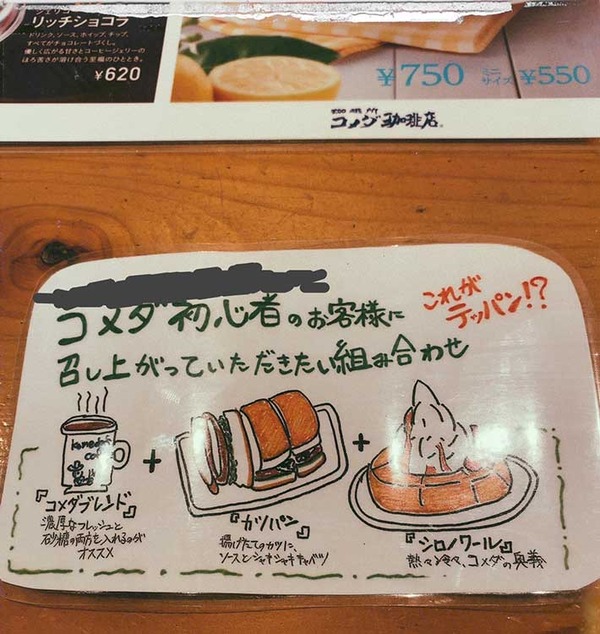 リッチショコラ
ドリンク、ソース、ホイップ、チップ、
すべてがチョコレートづくし。
優しく広がる甘さとコーヒージェリーの
ほろ苦さが溶け合う至福のひととき。
¥620
¥750 ミニサイズ ¥550
コメダ珈琲店
コメダ初心者のお客様に
召し上がっていただきたい組み合わせ
これが
テッパン!?
+
+
『コメダブレンド』
濃厚なフレッシュと
砂糖の両方を入れるのが
オススメ
『カツパン』
揚げたてのカツに、
ソースとシャキシャキキャベツ
『シロノワール』
熱々冷々、コメダの奥義